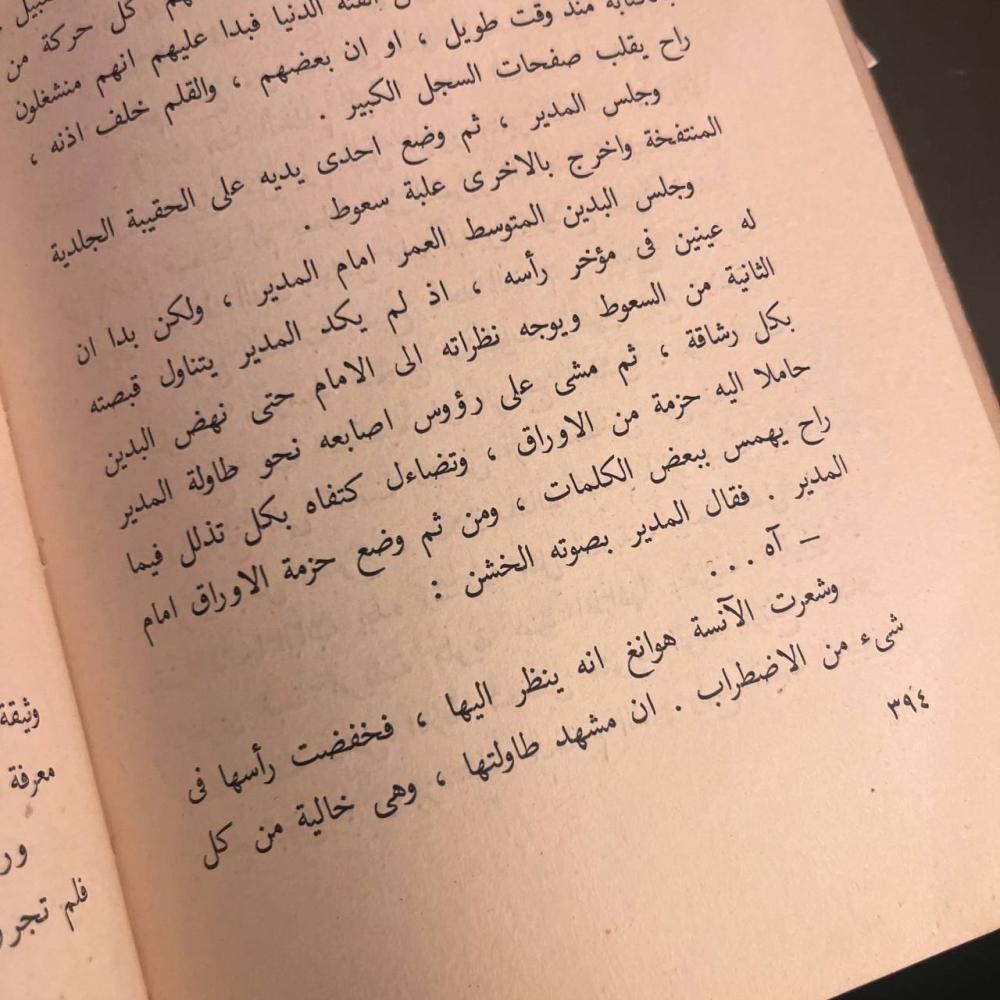 كل حركة من
الدنيا فبدا عليهم انهم منشغلون
منذ وقت طويل ، او ان بعضهم ، والقلم خلف اذنه ،
راح يقلب صفحات السجل الكبير .
وجلس المدير ، ثم وضع احدى يديه على الحقيبة الجلدية
المنتفخة واخرج بالاخرى علبة سعوط .
وجلس البدين المتوسط العمر امام المدير ، ولكن بدا ان
له عينين فى مؤخر رأسه ، اذ لم يكد المدير يتناول قبصته
الثانية من السعوط ويوجه نظراته الى الامام حتى نهض البدين
بكل رشاقة ، ثم مشى على رؤوس اصابعه نحو طاولة المدير
حاملا اليه حزمة من الاوراق ، وتضاءل كتفاه بكل تذلل فيما
راح يهمس ببعض الكلمات ، ومن ثم وضع حزمة الاوراق امام
المدير . فقال المدير بصوته الخشن :
– آه ...
وشعرت الآنسة هوانغ انه ينظر اليها ، فخفضت رأسها فى
شىء من الاضطراب . ان مشهد طاولتها ، وهى خالية من كل
٣٩٤
وثيقة
معرفة
فلم